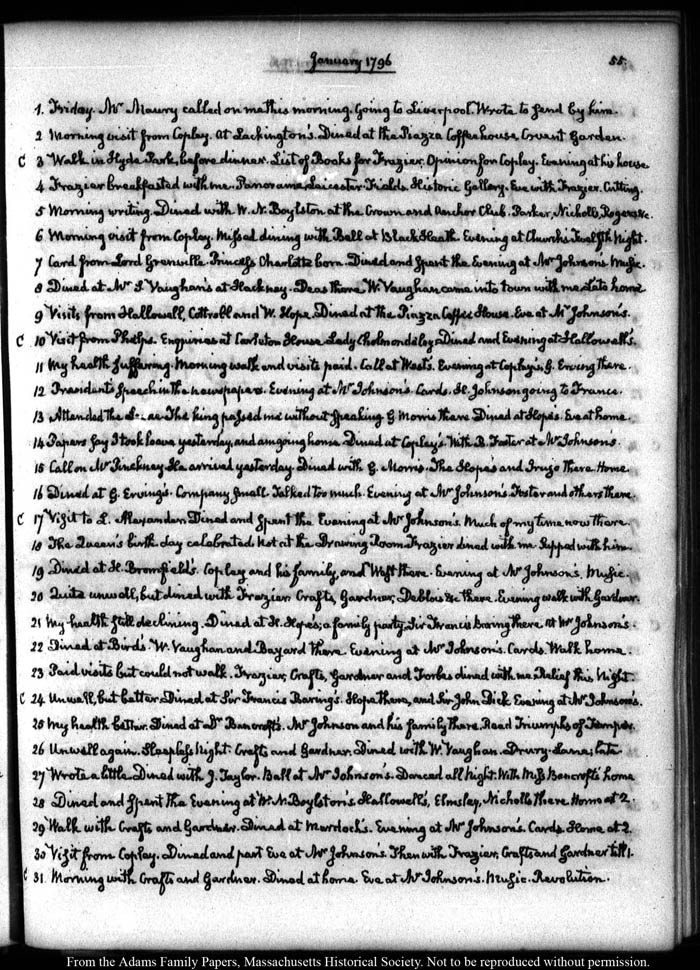 January 1796
55.
1. Friday. Mr Maury called on me this morning. Going to Liverpool. Wrote to send by him.
2 Morning visit from Copley. At Lackington's. Dined at the Piazza Coffee house Covent Garden.
C 3 Walk in Hyde Park, before dinner. List of Books for Frazier. Opinion for Copley. Evening at his house
4 Frazier breakfasted with me. Panorama Leicester Fields. Historic Gallery. Eve with Frazier. Cutting.
5 Morning writing. Dined with W. N. Boylston at the Crown and Anchor Club. Parker, Nicholls, Rogers &c.
6 Morning visit from Copley. Missed dining with Ball at Black Heath. Evening at Church's Twelfth Night.
7 Card from Lord Grenville. Princess Charlotte born. Dined and spent the Evening at Mr Johnson's. Music.
8 Dined at Mr S. Vaughan's at Hackney. Deas there. W. Vaughan came into town with me. Late home
9 Visits from Hallowell, Cottrell and W. Hope. Dined at the Piazza Coffee House. Eve at Mr Johnson's.
C 10 Visit from Phelps. Enquiries at Carleton House. Lady Cholmondeley. Dined and Evening at Hallowell's.
11 My health suffering. Morning walk and visits paid. Call at West's. Evening at Copley's, G. Erving there.
12 President's Speech in the newspapers. Evening at Mr Johnson's. Cards. H. Johnson going to France.
13 Attended the The King passed me without speaking. G Morris there Dined at Hope's. Eve at home.
14 Papers say I took leave yesterday, and am going home. Dined at Copley's. With B. Foster at Mr Johnson's.
15 Call on Mr Pinckney. He arrived yesterday. Dined with G. Morris. The Hopes and Irujo there Home
16 Dined at G. Erving's. Company small. Talked too much. Evening at Mr Johnson's. Foster and others there.
C 17 Visit to L. Alexander. Dined and spent the Evening at Mr Johnson's. Much of my time now there.
18 The Queen's birth day celebrated. Not at the Drawing Room. Frazier dined with me. Supped with him.
19 Dined at H. Bromfield's. Copley and his family, and West there. Evening at Mr Johnson's. Music.
20 Quite unwell, but dined with Frazier. Crafts, Gardner, Deblois &c there. Evening walk with Gardner.
21 My health still declining. Dined at H. Hope's; a family party, Sir Francis Baring there. At Mr Johnson's.
22 Dined at Bird's. W. Vaughan and Bayard there. Evening at Mr Johnson's. Cards. Walk home.
23 Paid visits but could not walk. Frazier, Crafts, Gardner and Forbes dined with me. Relief this Night.
C 24 Unwell, but better. Dined at Sir Francis Baring's. Hope there, and Sir John Dick. Evening at Mr Johnson's.
25 My health better. Dined at Dr Bancroft's. Mr Johnson and his family there. Read Triumphs of Temper.
26 Unwell again. Sleepless Night. Crafts and Gardner. Dined with W. Vaughan. Drury-Lane; late.
27 Wrote a little. Dined with J. Taylor. Ball at Mr Johnson's. Danced all Night. With Miss Bancroft's home
28 Dined and spent the Evening at W. N. Boylston's. Hallowell's, Elmsley, Nicholls there. Home at 2.
29 Walk with Crafts and Gardner. Dined at Murdoch's. Evening at Mr Johnson's. Cards. Home at 2.
30 Visit from Copley. Dined and part Eve at Mr Johnson's. Then with Frazier, Crafts and Gardner till 1.
C 31. Morning with Crafts and Gardner. Dined at home. Eve at Mr Johnson's. Music. Revolution.
From the Adams Family Papers, Massachusetts Historical Society. Not to be reproduced without permission.